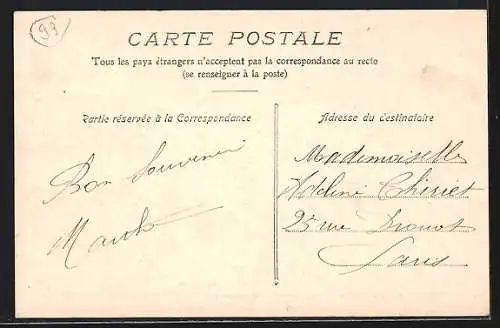 99
CARTE POSTALE
Tous les pays étrangers n'acceptent pas la correspondance au recto
(se renseigner à la poste)
Partie réservée à la Correspondance
Bon Souvenir
Adresse du destinataire
Mademoiselle
25 rue Drouot
Paris